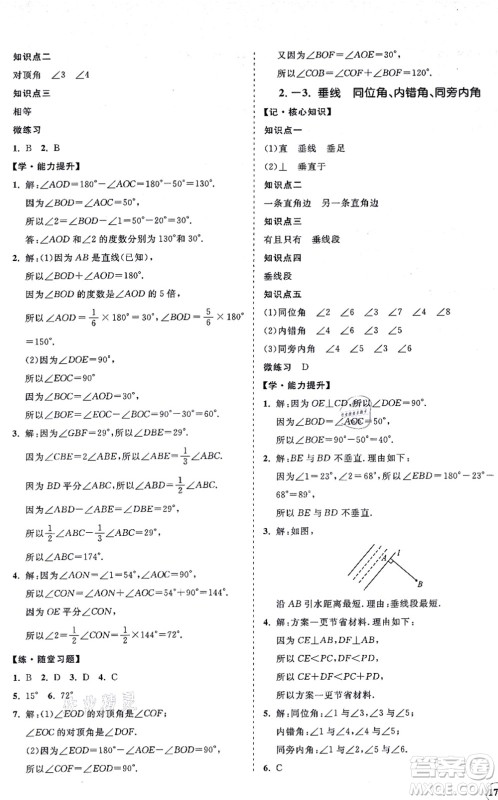 知识点二
对顶角 ∠3 ∠4
知识点三
相等
微练习
1. B 2. B
【学·能力提升】
1. 解:∠AOD=180°-∠AOC=180°-50°=130°.
因为∠BOD=∠AOC=50°,
所以∠1=∠BOD-∠2=50°-30°=20°.
答:∠AOD和∠2的度数分别为130°和30°.
2. 解:(1)因为AB是直线(已知),
所以∠BOD+∠AOD=180°.
因为∠BOD的度数是∠AOD的5倍,
所以∠AOD=1/6×180°=30°,∠BOD=5/6×180°=
150°.
(2)因为∠COD=∠AOD=30°,
所以∠EOC=90°-∠COD=60°.
因为∠EOC=∠BOE,
所以∠BOE=60°.
3. 解:因为∠GBF=29°(已知),所以∠DBE=29°.
因为∠EBC=2∠DBE,所以∠DBE=1/2∠EBC.
因为BD平分∠ABC,所以∠ABD=1/2∠ABC,
所以1/2∠ABC-1/3∠ABC=29°,
所以∠ABC=174°.
4. 解:因为∠AON+∠1=54°,∠AOC=90°,
所以∠CON=90°+54°=144°.
因为OE平分∠CON,
所以∠2=1/2∠CON=1/2×144°=72°.
【练·随堂习题】
1. B 2. D 3. B 4. C
5. 15° 6. 72°
7. 解:(1)∠EOD的对顶角是∠COF,
∠EOC的对顶角是∠DOF.
(2)因为∠EOD+∠AOE=180°,∠AOE=50°,
所以∠EOD=130°.
又因为∠BOF=∠AOE=30°,
所以∠COB=∠COF+∠BOF=160°.
2.—3. 垂线 同位角、内错角、同旁内角
【记·核心知识】
知识点一
(1)直 垂线 垂足
(2)⊥ 垂直于
知识点二
一条直角边 另一条直角边
知识点三
有且只有 垂线
知识点四
垂线段
知识点五
(1)同位角 ∠6 ∠7 ∠8
(2)内错角 ∠5 ∠4
(3)同旁内角 ∠6 ∠4
微练习 D
【学·能力提升】
1. 解:因为OE⊥CD,所以∠DOE=90°.
因为∠BOD=∠AOC=50°,
所以∠BOE=90°-50°=40°.
2. 解:BE与BD不垂直.
因为∠1=23°,∠2=68°,所以∠EBD=180°-23°
-68°=89°,
所以BE与BD不垂直.
3. 解:如图,
A
l
B
沿AB引水距离最短.理由:垂线段最短.
4. 解:方案一更节省材料.理由:
因为CE⊥PE,DF⊥PF,CD不垂直于EF,
所以CE<PC,DF<PD,
所以CE+DF<PC+PD,
所以方案一更节省材料.
5. 解:同位角:∠1与∠3,∠2与∠4.
内错角:∠1与∠4,∠2与∠5.
同旁内角:∠1与∠5,∠1与∠2.
6. C
17